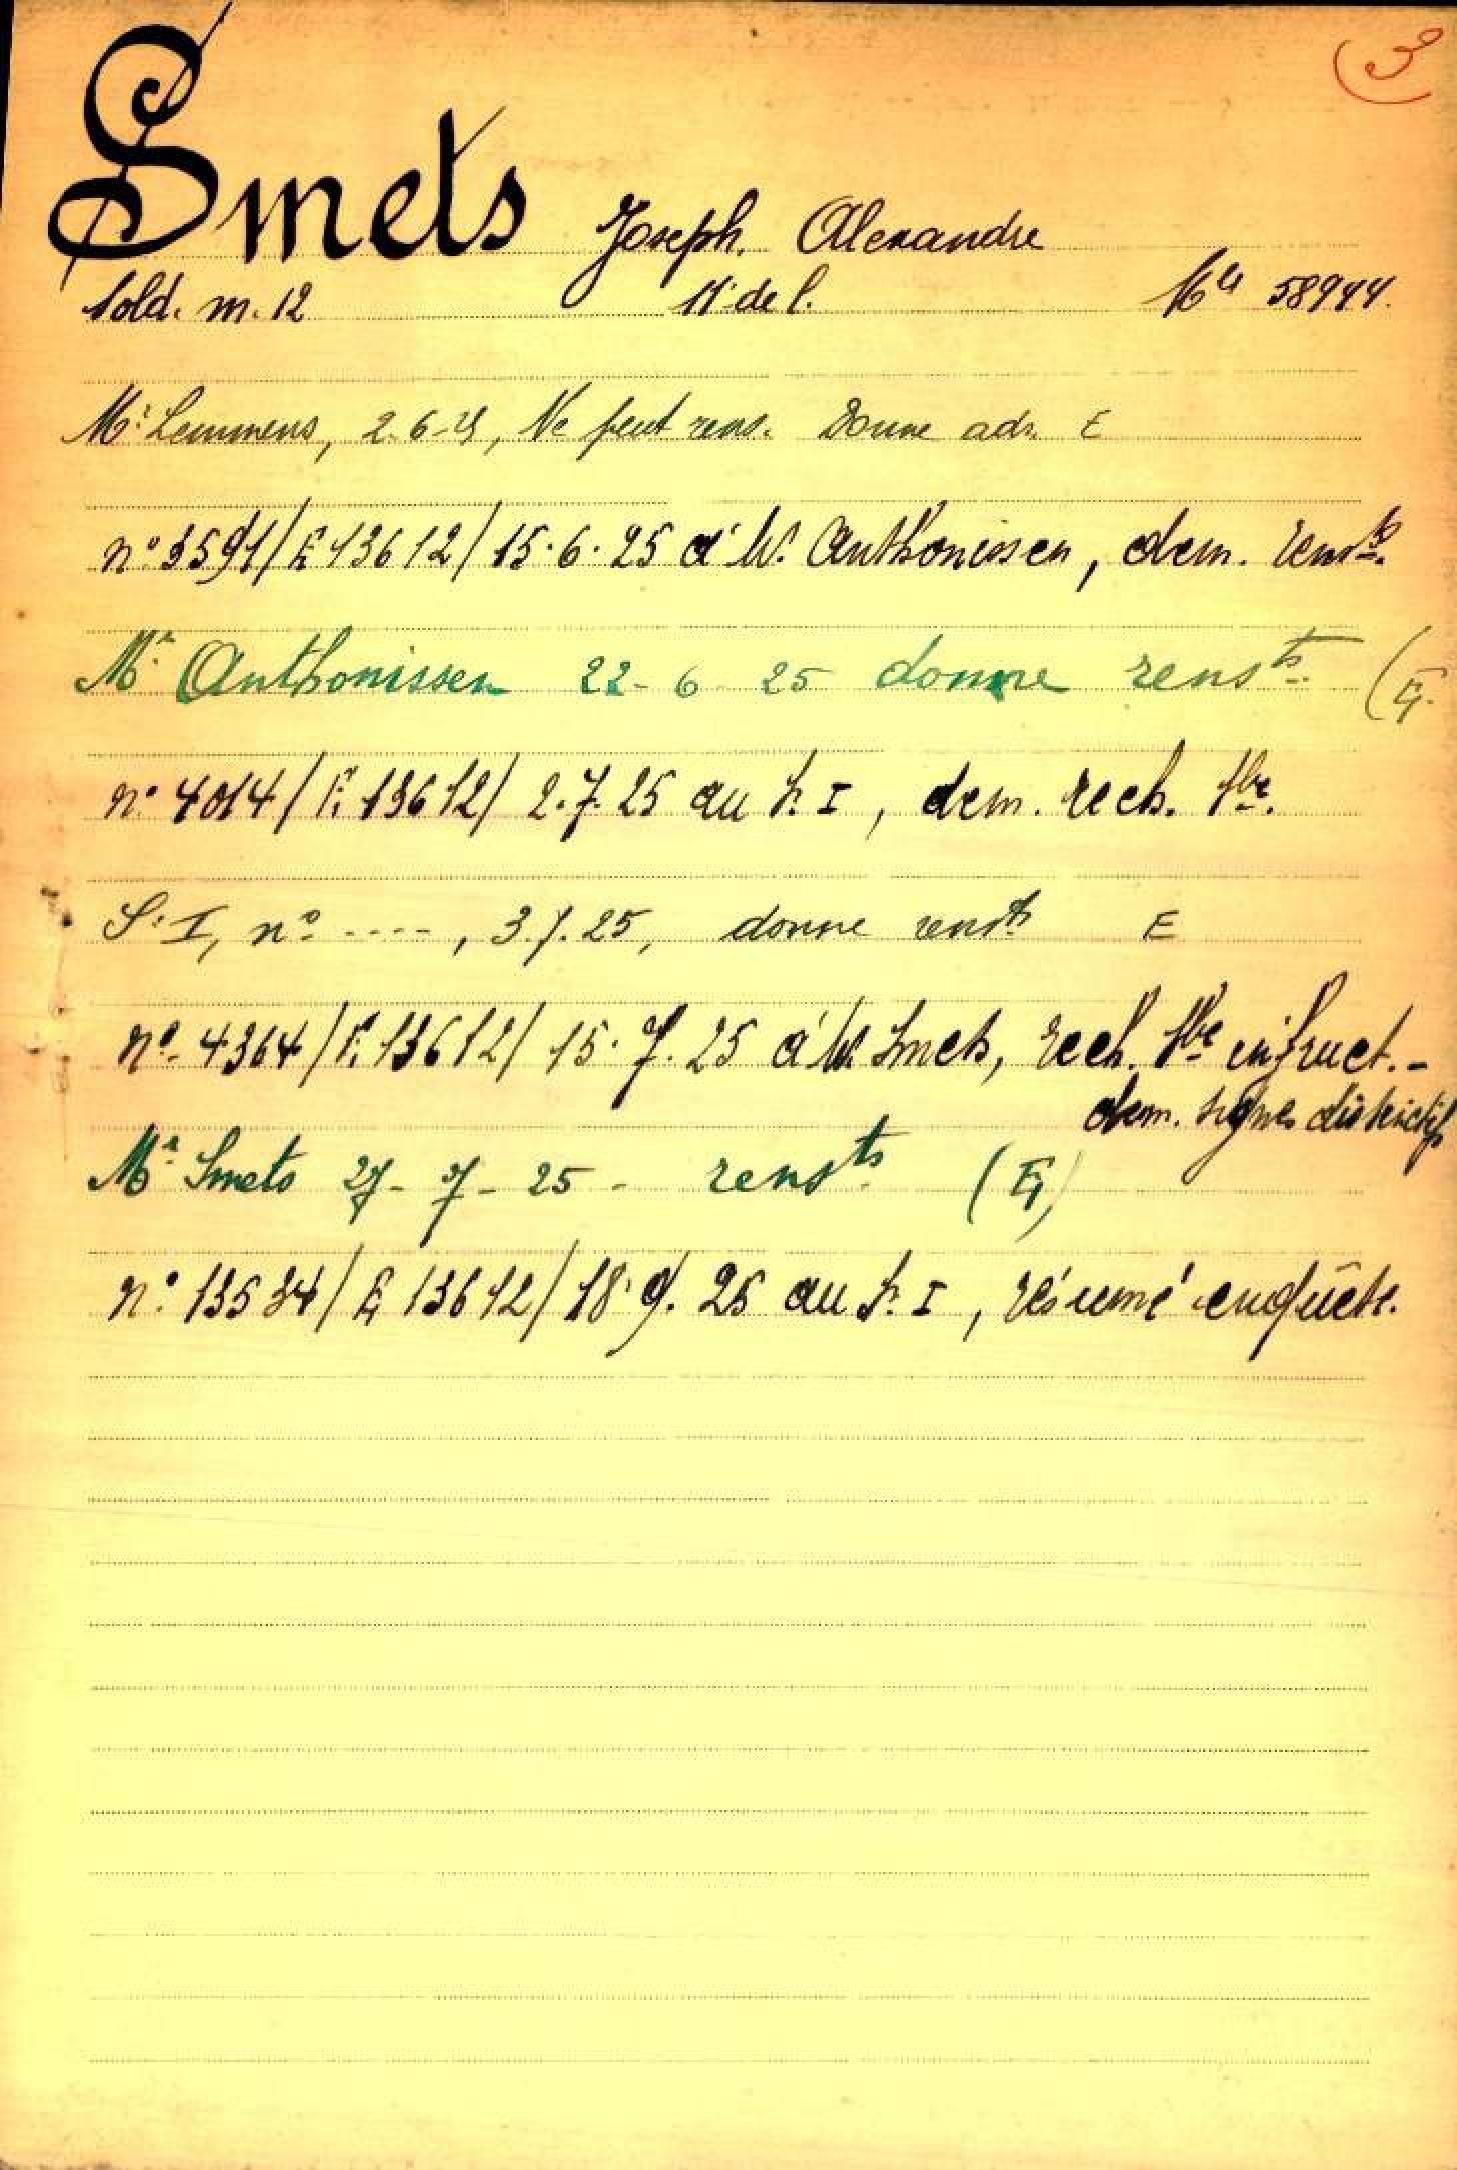 3
Smets Joseph. Alexandre
Sold. m. 12 11e de l. Mle 58944.
Mr Lemmens, 2-6-25, Ne peut rens. Donne adr. E
n° 3591/E 13612/15.6.25 à Mr Anthonissen, dem. rensts.
Mr Anthonissen 22-6-25 donne rensts. (E.
n° 4014/E 13612/ 2.7.25 au S. I, dem. rech. tbe.
S. I, n° ----, 3.7.25, donne rensts E
n° 4364/E 13612/ 15.7.25 à Mr Smets, rech. tbe infruct.-
dem. signes distinctifs
Mr Smets 27-7-25 - rensts (E)
n° 13534/E 13612/18.9.25 au S. I, résumé enquête.